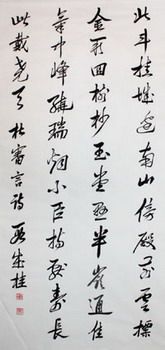 北斗挂城邊南山倚殿前雲標
金闕迴樹杪玉堂懸半嶺通佳
氣中峰繞瑞烟小臣持獻壽長
此戴堯天 杜審言詩 段成桂